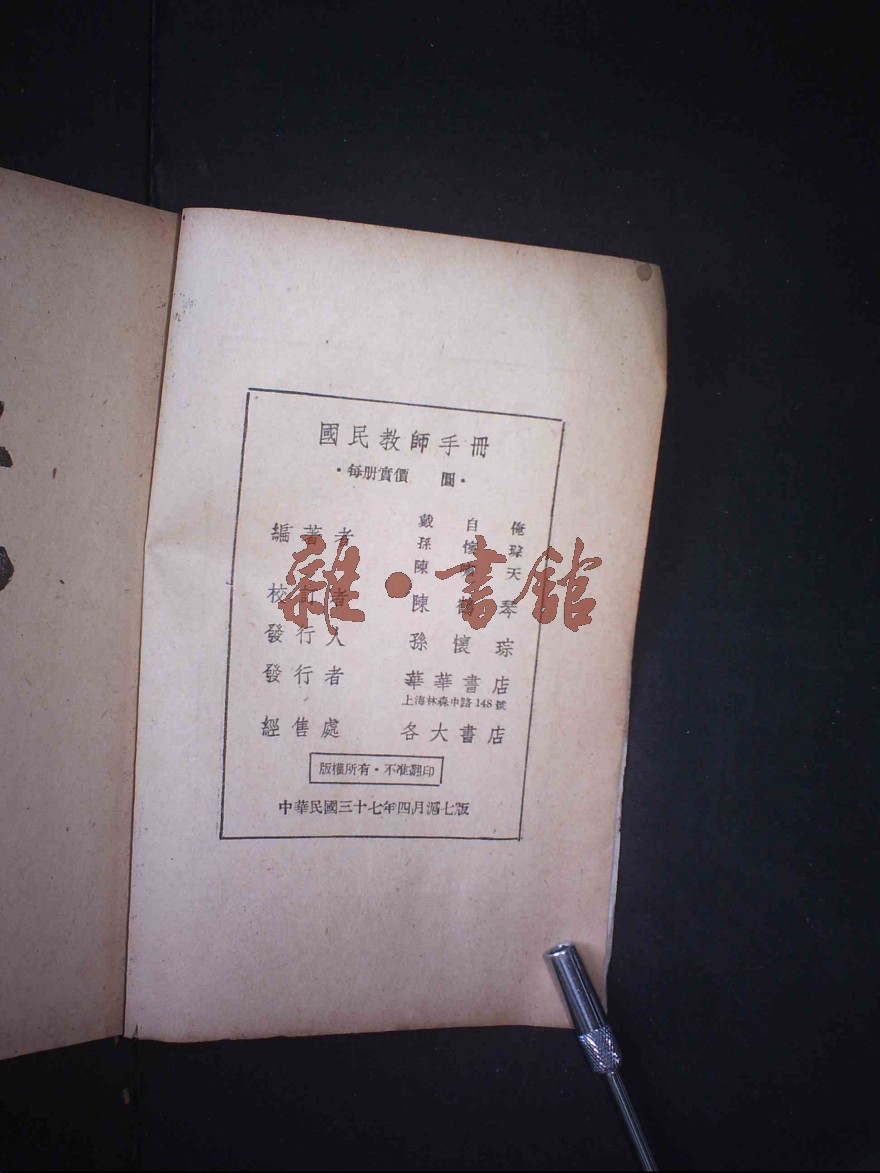 國民教師手冊
·每册實價 圓·
編著者 戴自俺
孫懷琮
陳 天
校訂者 陳鶴琴
發行人 孫懷琮
發行者 華華書店
上海林森中路148號
經售處 各大書店
版權所有·不准翻印
中華民國三十七年四月滬七版
雜·書館